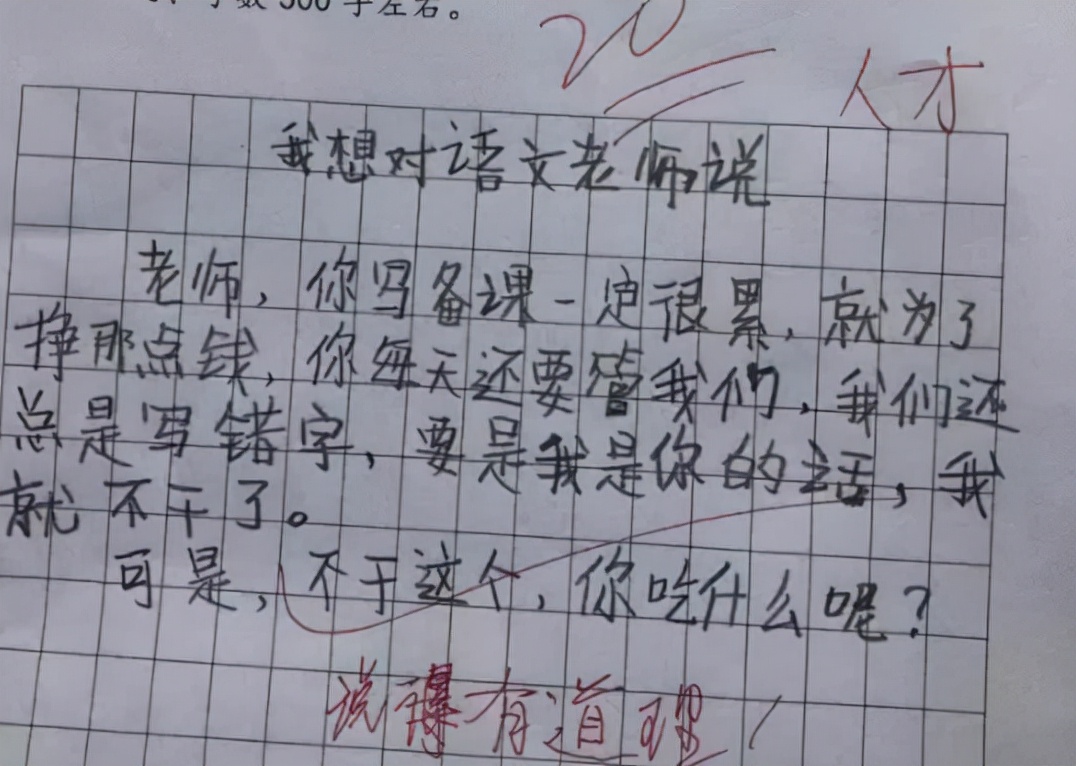 字数500字左右。
20
人才
我想对语文老师说
老师，你写备课一定很累，就为了
挣那点钱，你每天还要管我们，我们还
总是写错字，要是我是你的话，我
就不干了。
可是，不干这个，你吃什么呢？
说得有道理！